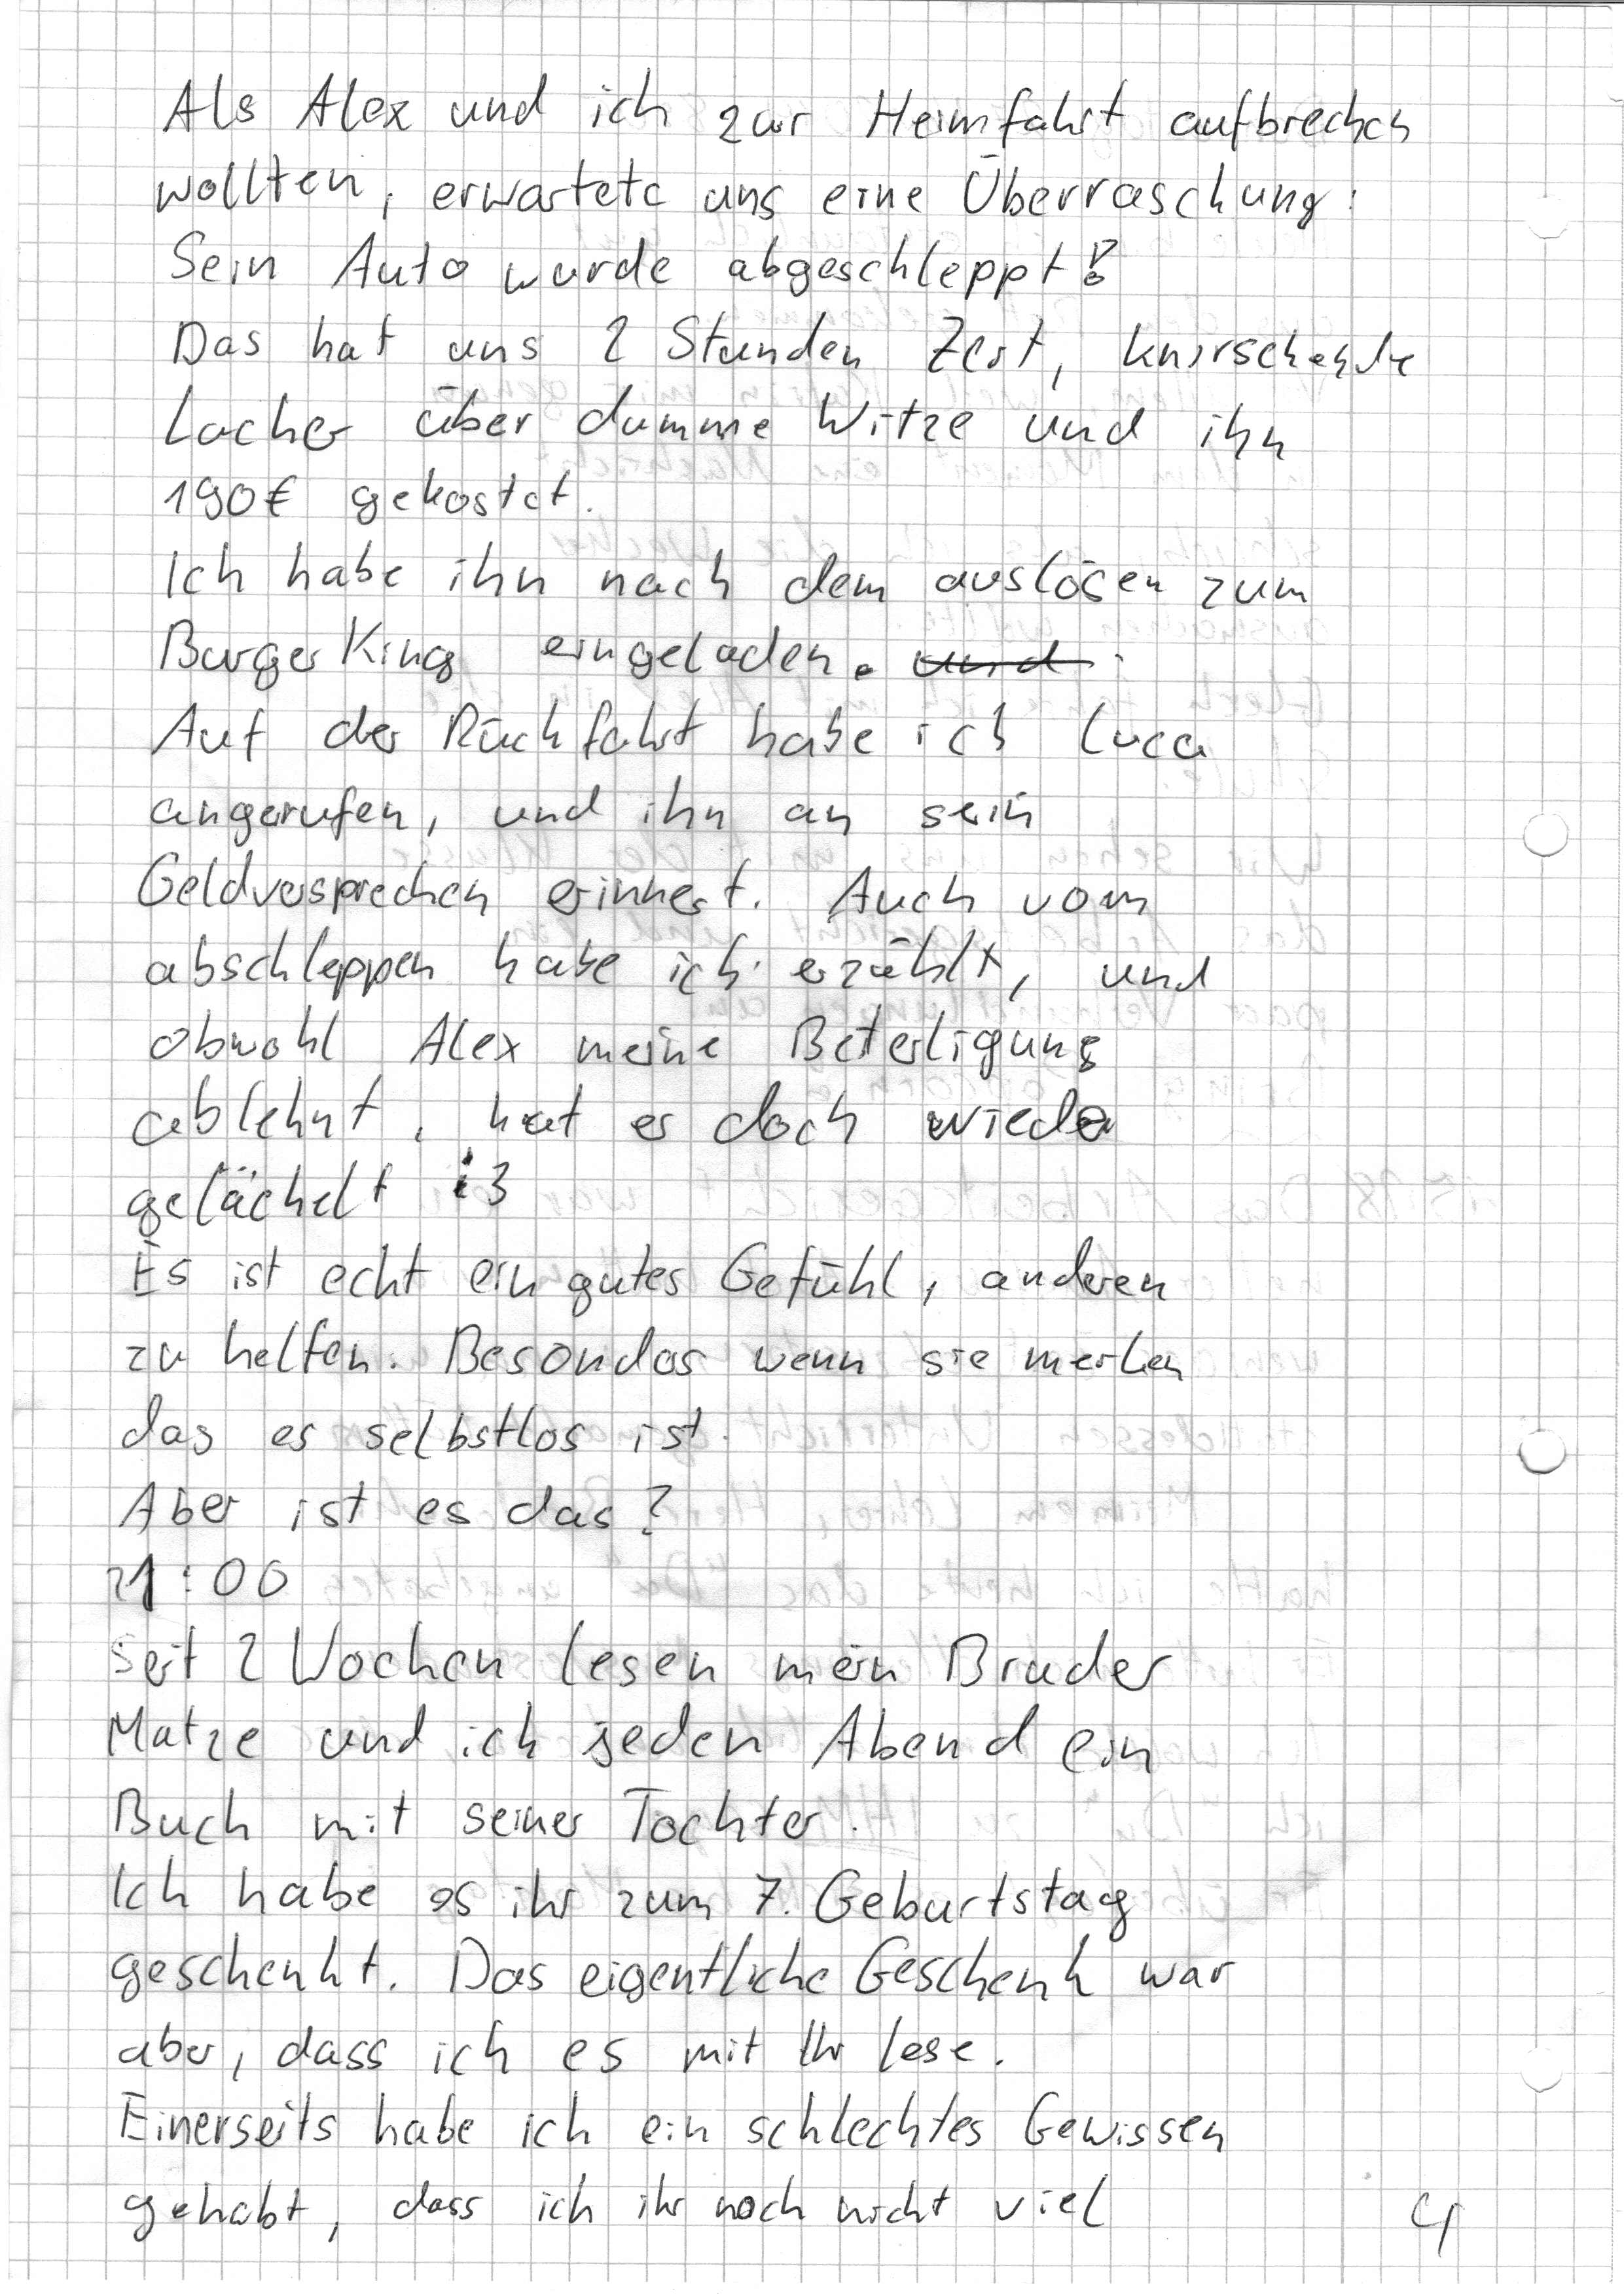 Als Alex und ich zur Heimfahrt aufbrechen
wollten, erwartete uns eine Überraschung:
Sein Auto wurde abgeschleppt!
Das hat uns 2 Stunden Zeit, knirschende
Lacher über dumme Witze und ihn
190€ gekostet.
Ich habe ihn nach dem auslösen zum
Burger King eingeladen. und
Auf der Rückfahrt habe ich Luca
angerufen, und ihn an sein
Geldversprechen erinnert. Auch vom
abschleppen habe ich erzählt, und
obwohl Alex meine Beteiligung
ablehnt, hat er doch wieder
gelächelt :3
Es ist echt ein gutes Gefühl, anderen
zu helfen. Besonders wenn sie merken
das es selbstlos ist.
Aber ist es das?
21:00
Seit 2 Wochen lesen mein Bruder
Matze und ich jeden Abend ein
Buch mit seiner Tochter.
Ich habe es ihr zum 7. Geburtstag
geschenkt. Das eigentliche Geschenk war
aber, dass ich es mit Ihr lese.
Einerseits habe ich ein schlechtes Gewissen
gehabt, dass ich ihr noch nicht viel
4